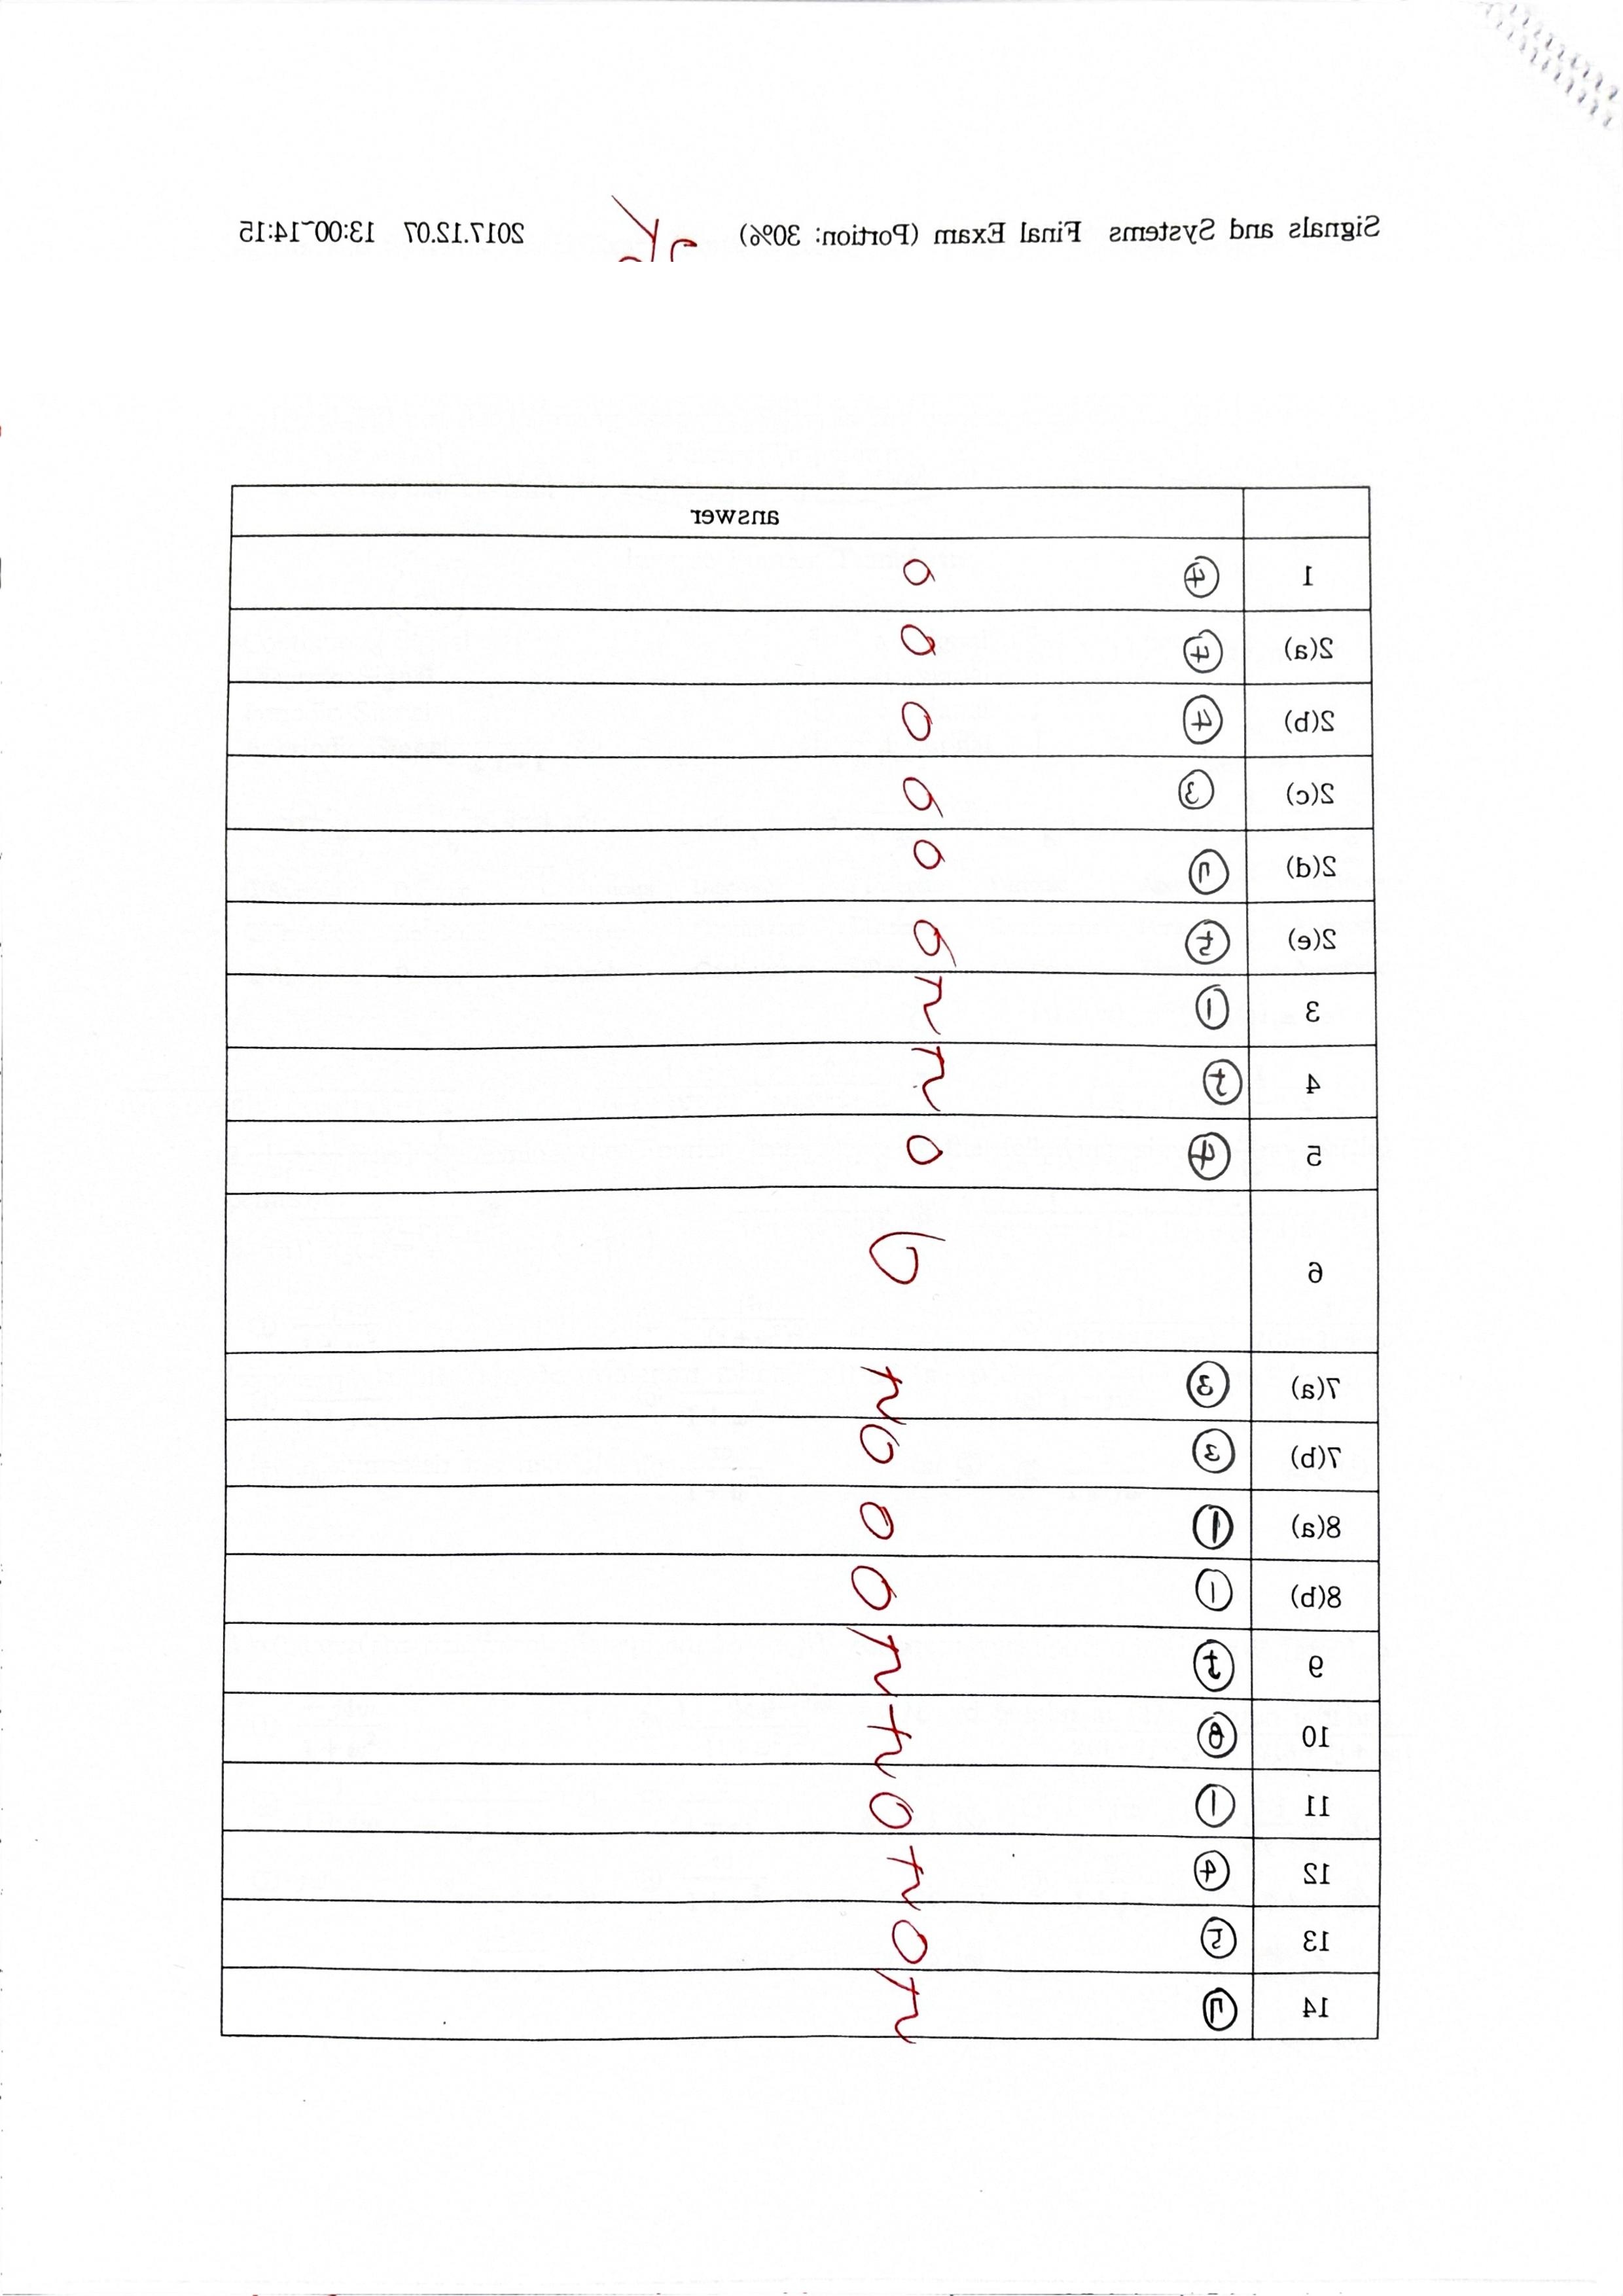 Signals and Systems Final Exam (Portion: 30%) 2017.12.07 13:00~14:15
answer
1 ④ O
2(a) ④ O
2(b) ④ O
2(c) ③ O
2(d) O
2(e) O
3 ①
4
5 ④ O
6 O
7(a) ③
7(b) ③ O
8(a) ① O
8(b) ① O
9
10 ⑧
11 ① O
12 ④
13 ⑤ O
14